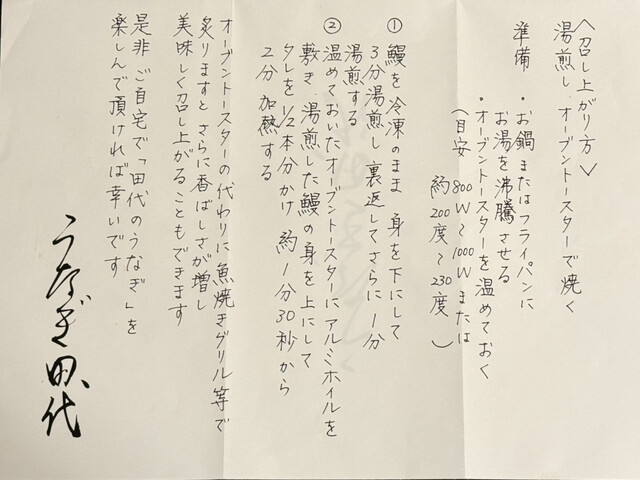 〈召し上がり方〉
湯煎し、オーブントースターで焼く
準備 ・お鍋またはフライパンに
お湯を沸騰させる
・オーブントースターを温めておく
(目安 800W〜1000Wまたは
約200度〜230度)
① 鰻を冷凍のまま 身を下にして
3分湯煎し 裏返してさらに1分
湯煎する
② 温めておいたオーブントースターにアルミホイルを
敷き、湯煎した鰻の身を上にして
タレを1/2本分かけ 約1分30秒から
2分 加熱する
オーブントースターの代わりに魚焼きグリル等で
炙りますとさらに香ばしさが増し
美味しく召し上がることもできます
是非 ご自宅で「田代のうなぎ」を
楽しんで頂ければ幸いです
うなぎ田代